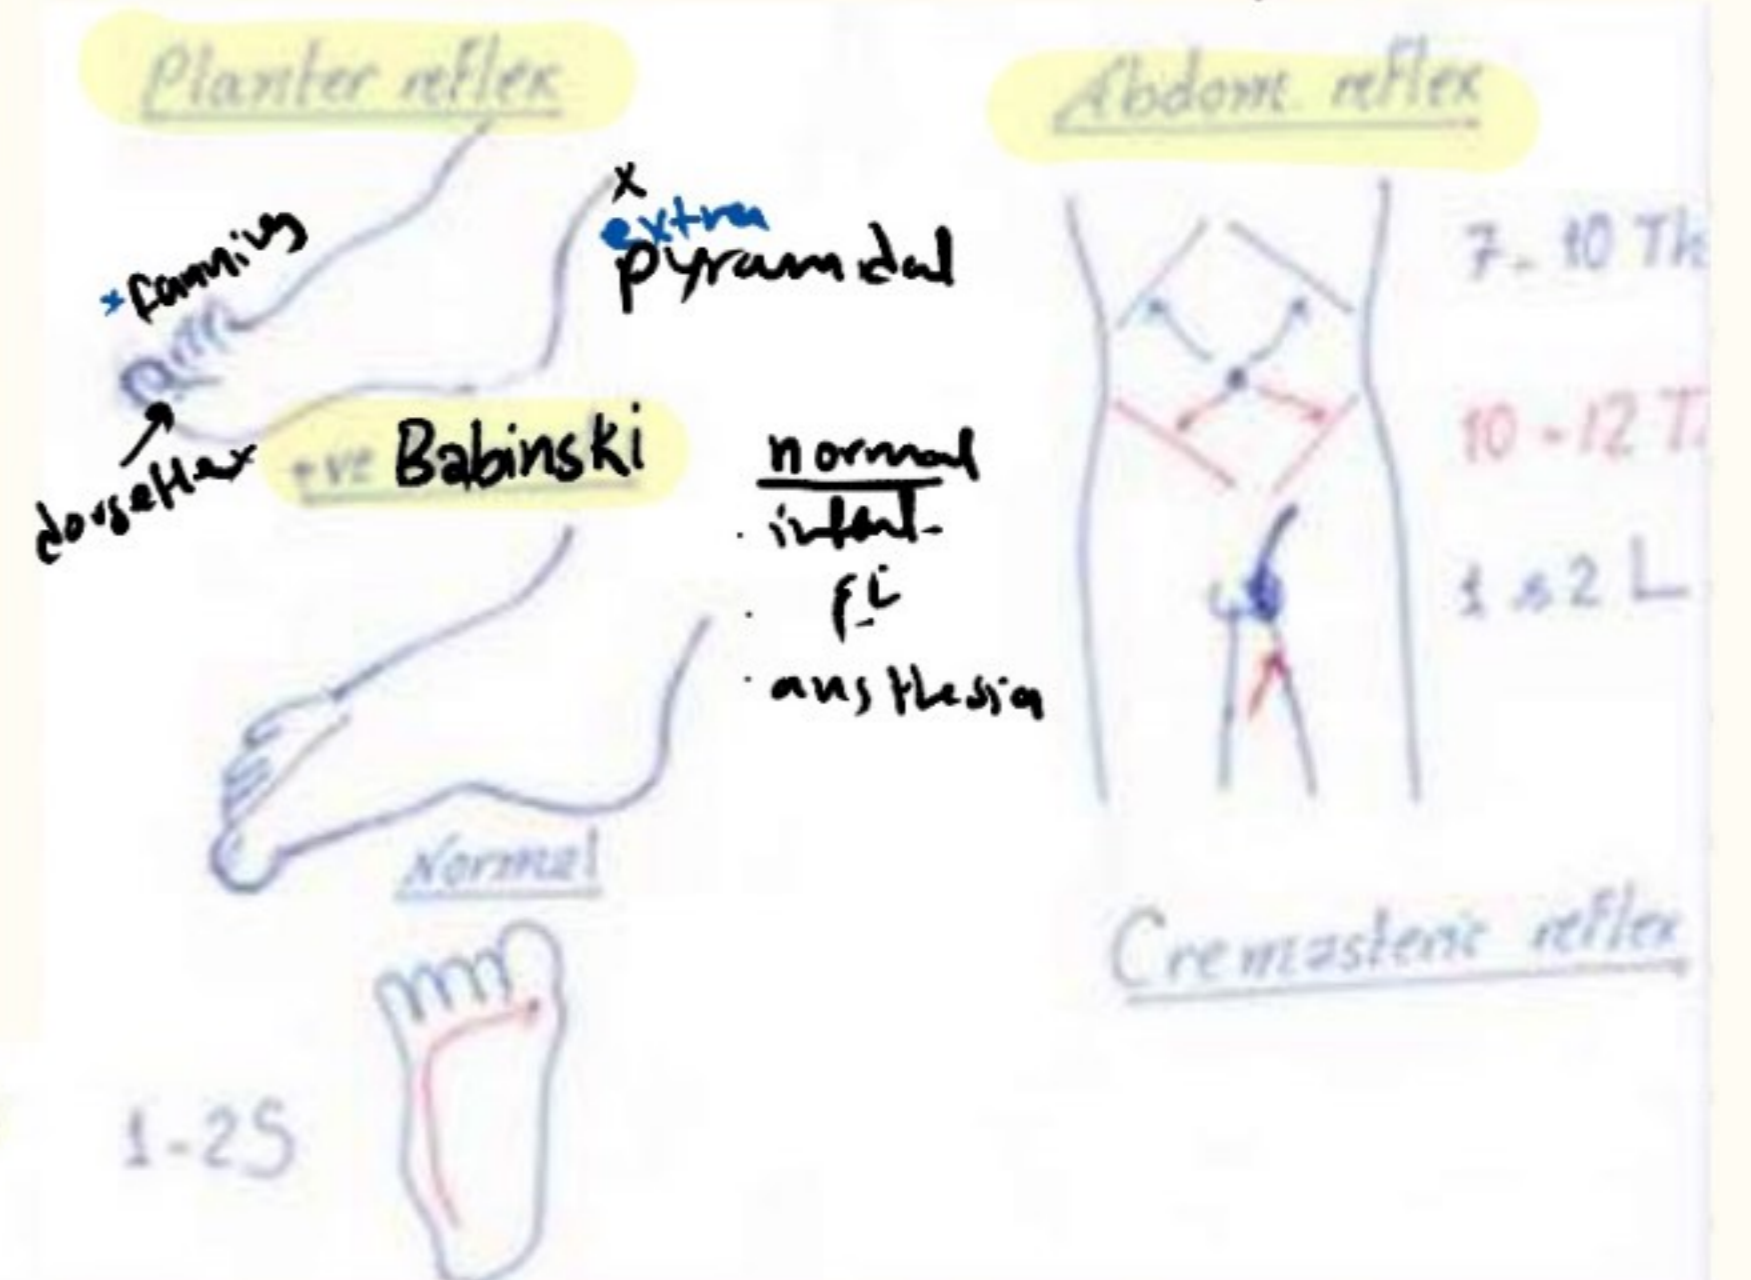 Planter reflex
× fanning
x
extra
pyramidal
dorseflex
+ve Babinski
normal
· infant
·
· ansthesia
Normal
1-2S
Abdom. reflex
7-10 Th
10-12 T
1 2 L
Cremasteric reflex